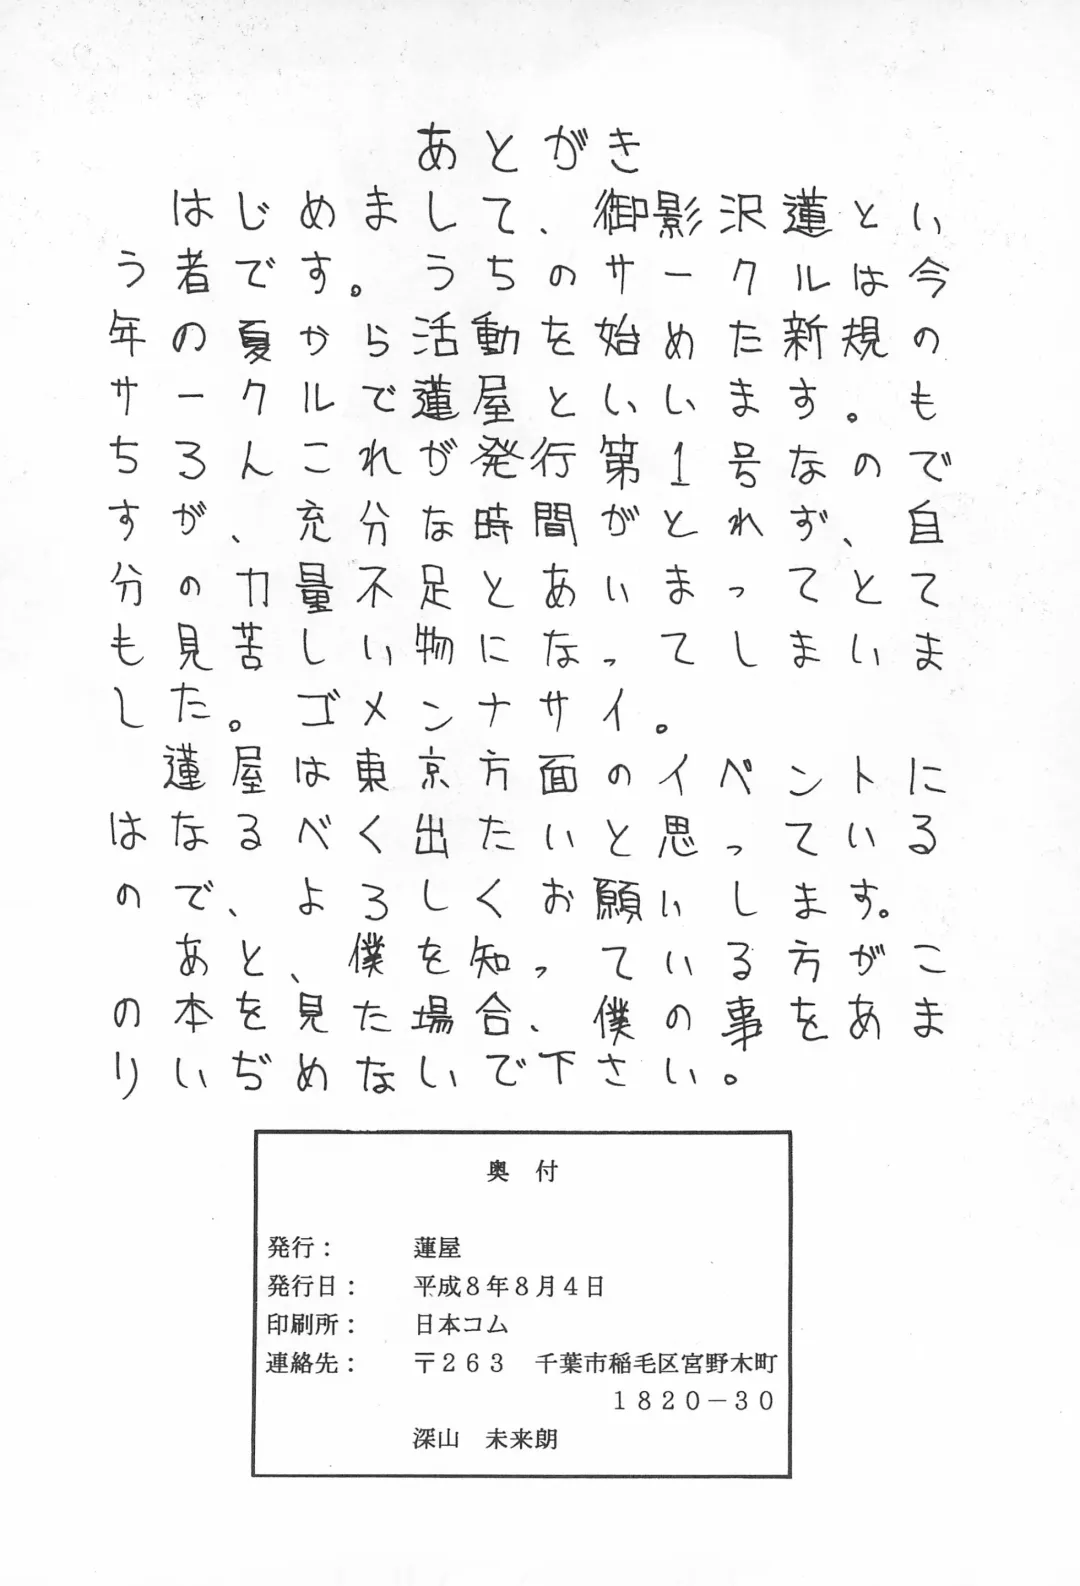 あとがき
はじめまして、御影沢蓮とい
う者です。うちのサークルは今
年の夏から活動を始めた新規の
サークルで蓮屋といいます。も
ちろんこれが発行第1号なので
すが、充分な時間がとれず、自
分の力量不足とあいまってとて
も見苦しい物になってしまいま
した。ゴメンナサイ。
蓮屋は東京方面のイベントに
はなるべく出たいと思っている
ので、よろしくお願いします。
あと、僕を知っている方がこ
の本を見た場合、僕の事をあま
りいぢめないで下さい。
奥　付
発行：　蓮屋
発行日：　平成８年８月４日
印刷所：　日本コム
連絡先：　〒２６３　千葉市稲毛区宮野木町
１８２０－３０
深山　未来朗